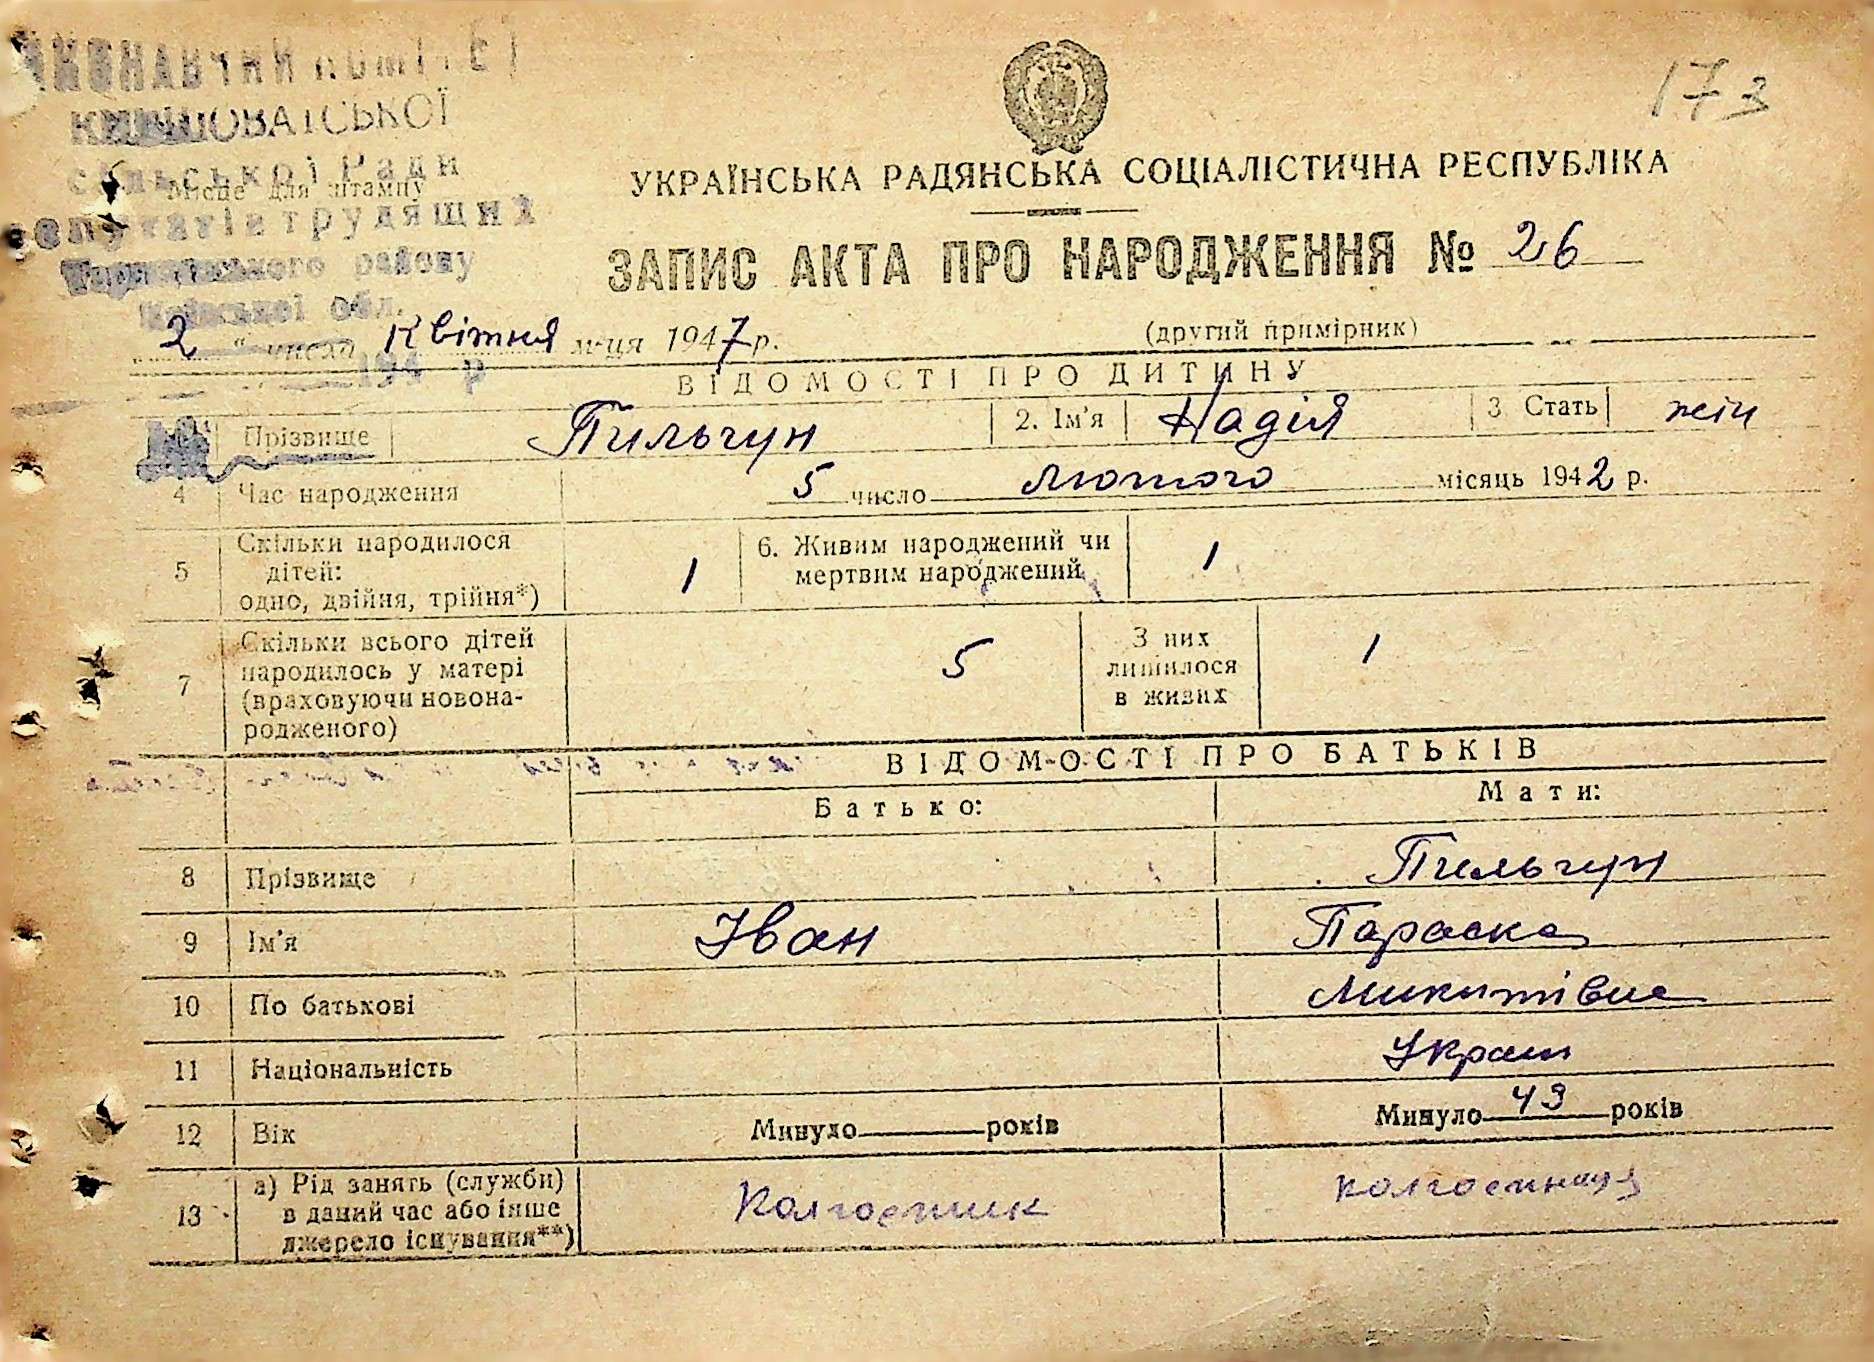 173
КИВШОВАТСЬКОЇ
сільської Ради
Місце для штампу
депутатів трудящих
району
обл.
194 р
УКРАЇНСЬКА РАДЯНСЬКА СОЦІАЛІСТИЧНА РЕСПУБЛІКА
ЗАПИС АКТА ПРО НАРОДЖЕННЯ № 26
„2“ числа Квітня м-ця 1947 р.
(другий примірник)
ВІДОМОСТІ ПРО ДИТИНУ
Прізвище Пильгун 2. Ім'я Надія 3 Стать жін
4 Час народження 5 число лютого місяць 1942 р.
5 Скільки народилося дітей: одно, двійня, трійня*) 1 6. Живим народжений чи мертвим народжений 1
7 Скільки всього дітей народилось у матері (враховуючи новонародженого) 5 З них лишилося в живих 1
ВІДОМОСТІ ПРО БАТЬКІВ
Батько: Мати:
8 Прізвище Пильгун
9 Ім'я Іван Параска
10 По батькові Микитівна
11 Національність Україн
12 Вік Минуло років Минуло 43 років
13 а) Рід занять (служби) в даний час або інше джерело існування**) Колгоспник колгоспниця